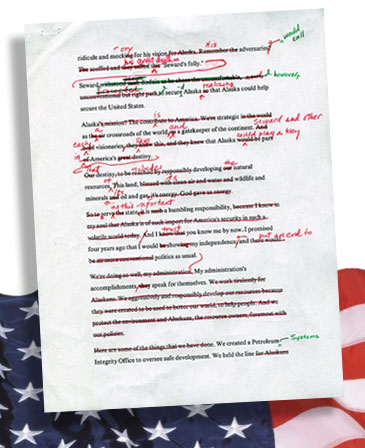 cry
would call
ridicule and mocking for his vision for Alaska. Remember the adversaries
His
his great dream
The scoffed and they called that "Seward's folly."
Seward withstood such disdain as he chose the uncomfortable,
however,
unconventional but right path to secure Alaska so that Alaska could help
realizing
secure the United States.
is
Alaska's mission? The contribute to America. We're strategic in the world
as the air crossroads of the world, as a gatekeeper of the continent. And
and
Seward and other
would play a key
bold visionaries, they knew this, and they knew that Alaska would be part
in of America's great destiny.
That
includes
the
Our destiny, to be reached by responsibly developing our natural
of
its
resources. This land, blessed with clean air and water and wildlife and
minerals and oil and gas, it's energy. God gave us energy.
this important
So to serve the state is such a humbling responsibility, because I know in
my soul that Alaska is of such import for America's security in such a
volatile world today. And I know you know me by now. I promised
trust
and
put an end to
four years ago that I would be showing my independence, and there would
be no more conventional politics as usual.
We're doing so well, my administration. My administration's
accomplishments, they speak for themselves. We work tirelessly for
Alaskans. We aggressively and responsibly develop our resources because
they were created to be used to better our world, to help people. And we
protect the environment and Alaskans, the resource owners, foremost with
our policies.
Here are some of the things that we have done. We created a Petroleum
Systems
Integrity Office to oversee safe development. We held the line for Alaskans